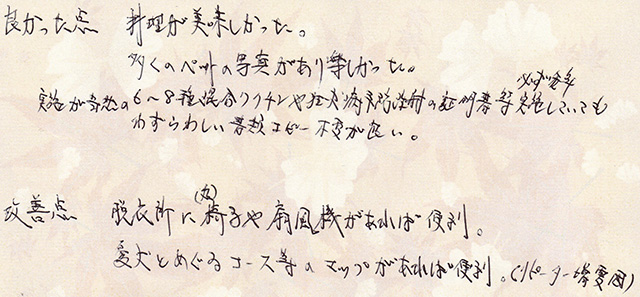 良かった点 料理が美味しかった。
多くのペットの写真があり楽しかった。
実施が当然の6～8種混合ワクチンや狂犬病予防注射の証明書等実施していても
わずらわしい書類コピー不要が良い。
改善点 脱衣所に(丸)椅子や扇風機があれば便利。
愛犬とめぐるコース等のマップがあれば便利。(リピーター増要因)